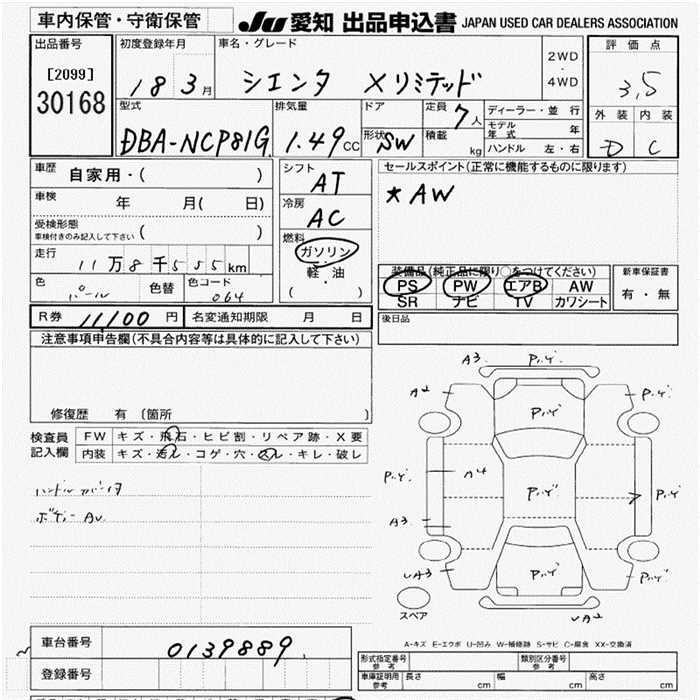 車内保管・守衛保管
JU 愛知 出品申込書 JAPAN USED CAR DEALERS ASSOCIATION
出品番号
[2099]
30168
初度登録年月
18 3月
車名・グレード
シエンタ Xリミテッド
2WD
・
4WD
評価点
3,5
外装 内装
D C
型式
DBA-NCP81G
排気量
1.49cc
ドア
形状 SW
定員 7人
積載 kg
ディーラー・並行
モデル年式 年
ハンドル 左・右
車歴 自家用・( )
車検 年 月( 日)
受検形態
車検付きのみ記入して下さい ( )
走行 11万8千555km
色 パール 色替 色コード 064
シフト
AT
冷房
AC
燃料
ガソリン
・
軽油
( )
セールスポイント(正常に機能するものに限ります)
★AW
装備品(純正品に限り○をつけてください)
PS PW エアB AW
SR ナビ TV カワシート
新車保証書
有・無
R券 11100円 名変通知期限 月 日
後日品
注意事項申告欄(不具合内容等は具体的に記入して下さい)
修復歴 有 [箇所 ]
検査員
記入欄
FW キズ・飛石・ヒビ割・リペア跡・X要
内装 キズ・汚レ・コゲ・穴・スレ・キレ・破レ
ボデーAU
A3 Pハゲ
A2 Pハゲ Pハゲ
Pハゲ A4 Pハゲ Pハゲ
A3
UA3 Pハゲ
スペア UA2
A-キズ E-エクボ U-凹み W-補修跡 S-サビ C-腐食 XX-交換済
車台番号 0139889
登録番号
形式指定番号
参考
類別区分番号
参考
車庫証明用
参考
長さ cm 幅 cm 高さ cm